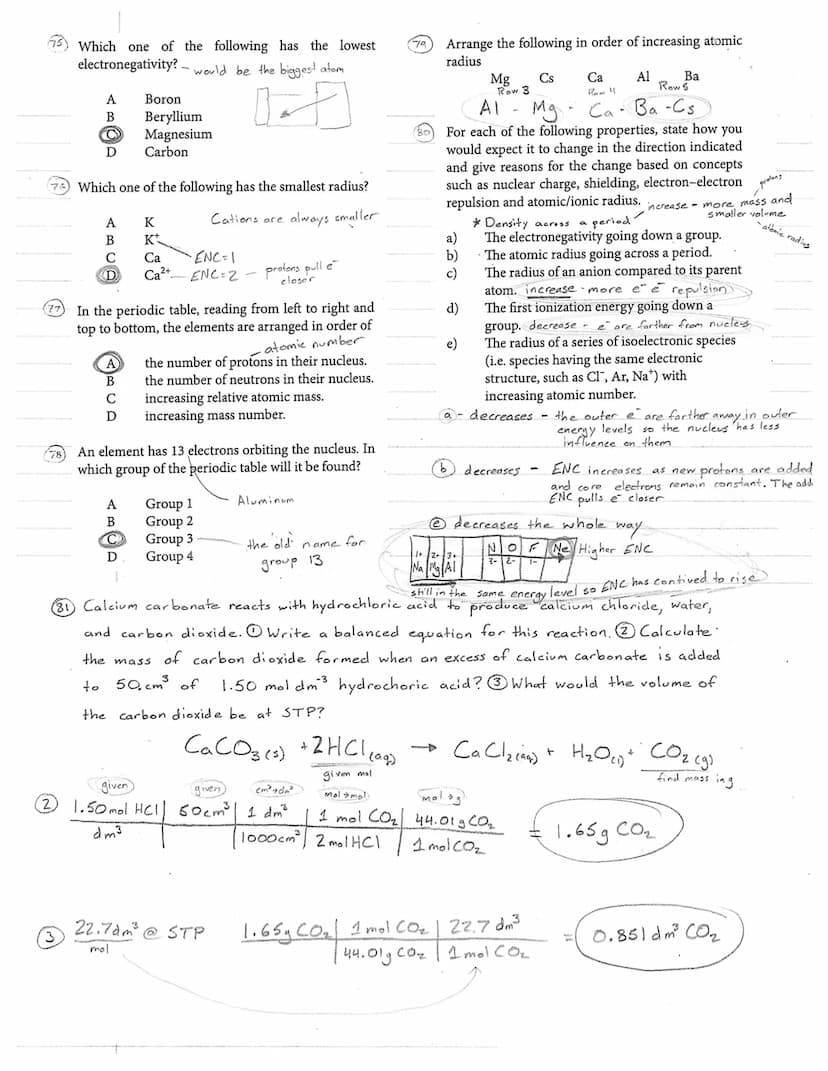 75 Which one of the following has the lowest
electronegativity? – would be the biggest atom
A Boron
B Beryllium
C Magnesium
D Carbon
76 Which one of the following has the smallest radius?
Cations are always smaller
A K
B K⁺
C Ca ENC=1
D Ca²⁺ – ENC=2 – protons pull e⁻
closer
77 In the periodic table, reading from left to right and
top to bottom, the elements are arranged in order of
atomic number
A the number of protons in their nucleus.
B the number of neutrons in their nucleus.
C increasing relative atomic mass.
D increasing mass number.
78 An element has 13 electrons orbiting the nucleus. In
which group of the periodic table will it be found?
A Group 1 Aluminum
B Group 2
C Group 3 the 'old' name for
D Group 4 group 13
79 Arrange the following in order of increasing atomic
radius
Mg Cs Ca Al Ba
Row 3 Row 4 Row 6
Al - Mg - Ca - Ba - Cs
80 For each of the following properties, state how you
would expect it to change in the direction indicated
and give reasons for the change based on concepts
such as nuclear charge, shielding, electron–electron protons
repulsion and atomic/ionic radius. increase - more mass and
smaller volume
* Density across a period atomic radius
a) The electronegativity going down a group.
b) The atomic radius going across a period.
c) The radius of an anion compared to its parent
atom. increase - more e⁻ e⁻ repulsion
d) The first ionization energy going down a
group. decrease - e⁻ are farther from nucleus
e) The radius of a series of isoelectronic species
(i.e. species having the same electronic
structure, such as Cl⁻, Ar, Na⁺) with
increasing atomic number.
a - decreases - the outer e⁻ are farther away in outer
energy levels so the nucleus has less
influence on them
b decreases - ENC increases as new protons are added
and core electrons remain constant. The add
ENC pulls e⁻ closer
e decreases the whole way
N O F Ne Higher ENC
3- 2- 1-
1+ 2+ 3+
Na Mg Al
still in the same energy level so ENC has contived to rise
81 Calcium carbonate reacts with hydrochloric acid to produce calcium chloride, water,
and carbon dioxide. ① Write a balanced equation for this reaction. ② Calculate
the mass of carbon dioxide formed when an excess of calcium carbonate is added
to 50. cm³ of 1.50 mol dm⁻³ hydrochoric acid? ③ What would the volume of
the carbon dioxide be at STP?
CaCO₃(s) + 2HCl(aq) → CaCl₂(aq) + H₂O(l) + CO₂(g)
given mol find mass in g
given given cm³→dm³ mol→mol mol→g
② 1.50 mol HCl 50cm³ 1 dm³ 1 mol CO₂ 44.01g CO₂ = 1.65g CO₂
dm³ 1000cm³ 2 mol HCl 1 mol CO₂
③ 22.7dm³ @ STP 1.65g CO₂ 1 mol CO₂ 22.7 dm³ = 0.851 dm³ CO₂
mol 44.01g CO₂ 1 mol CO₂